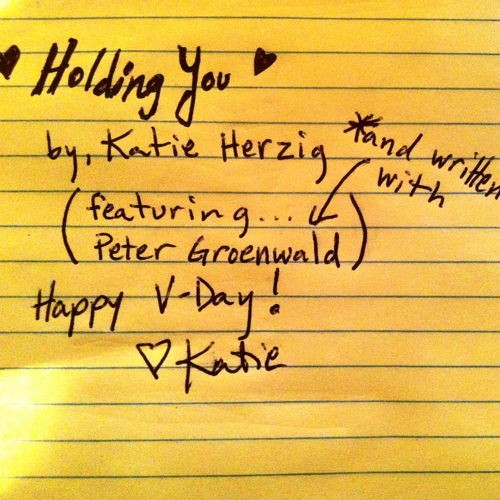 ♥ Holding You ♥
by, Katie Herzig
*and written
with
(featuring...
Peter Groenwald)
Happy V-Day!
♡ Katie